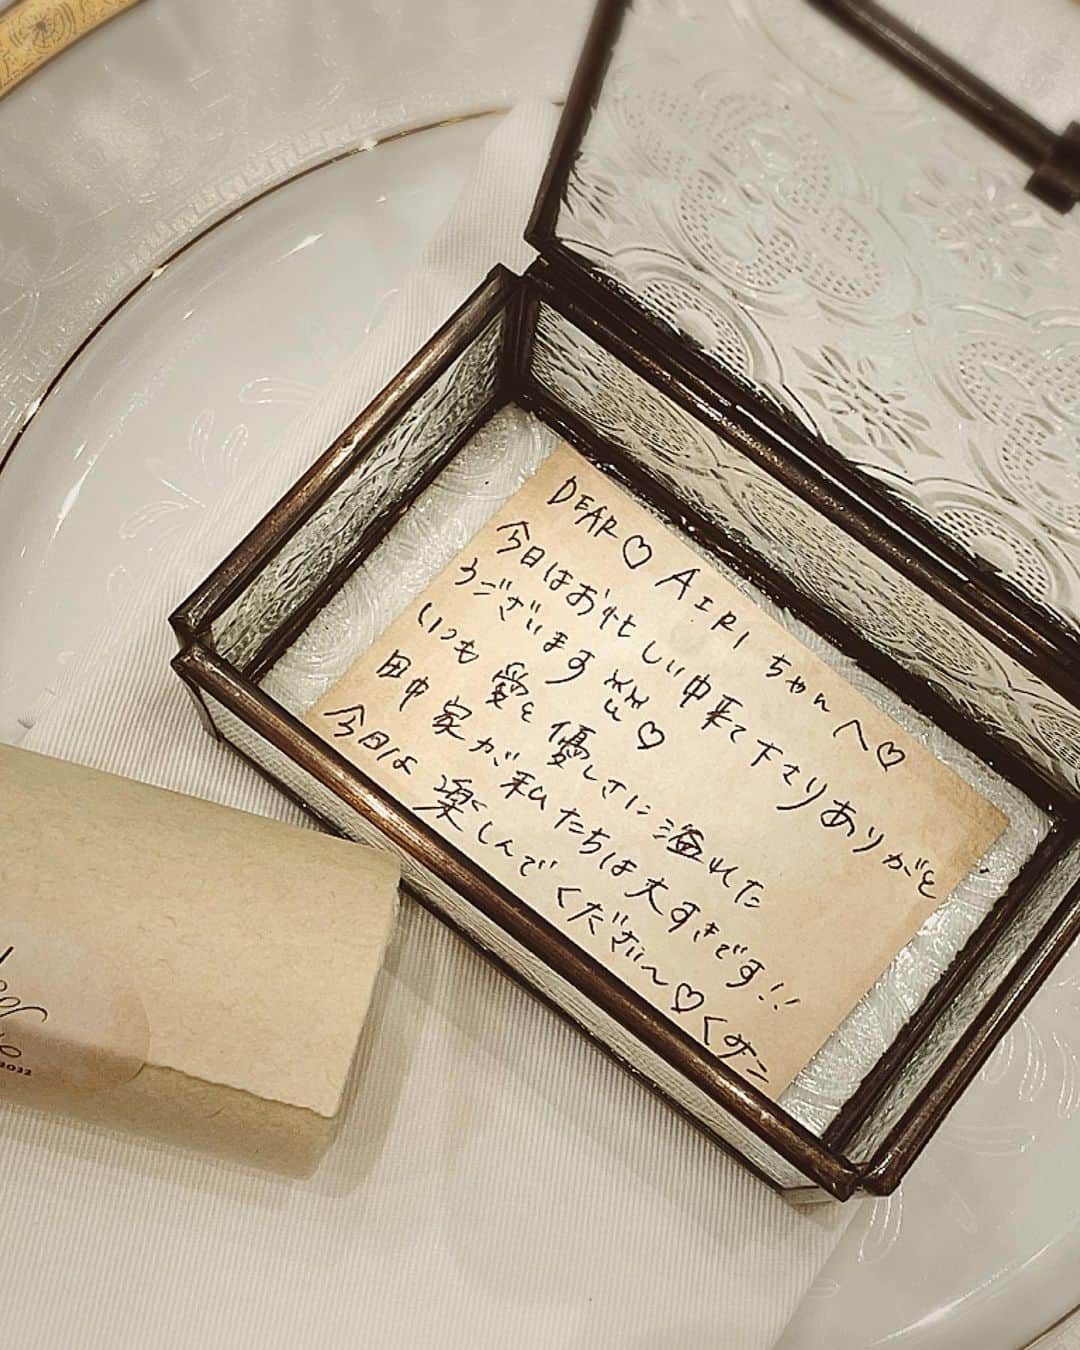 DEAR♡AIRIちゃんへ♡
今日はお忙しい中来て下さりありがと
うございます♡
いつも愛と優しさに溢れた
田中家が私たちは大すきです!!
今日は楽しんでください〜♡
2022